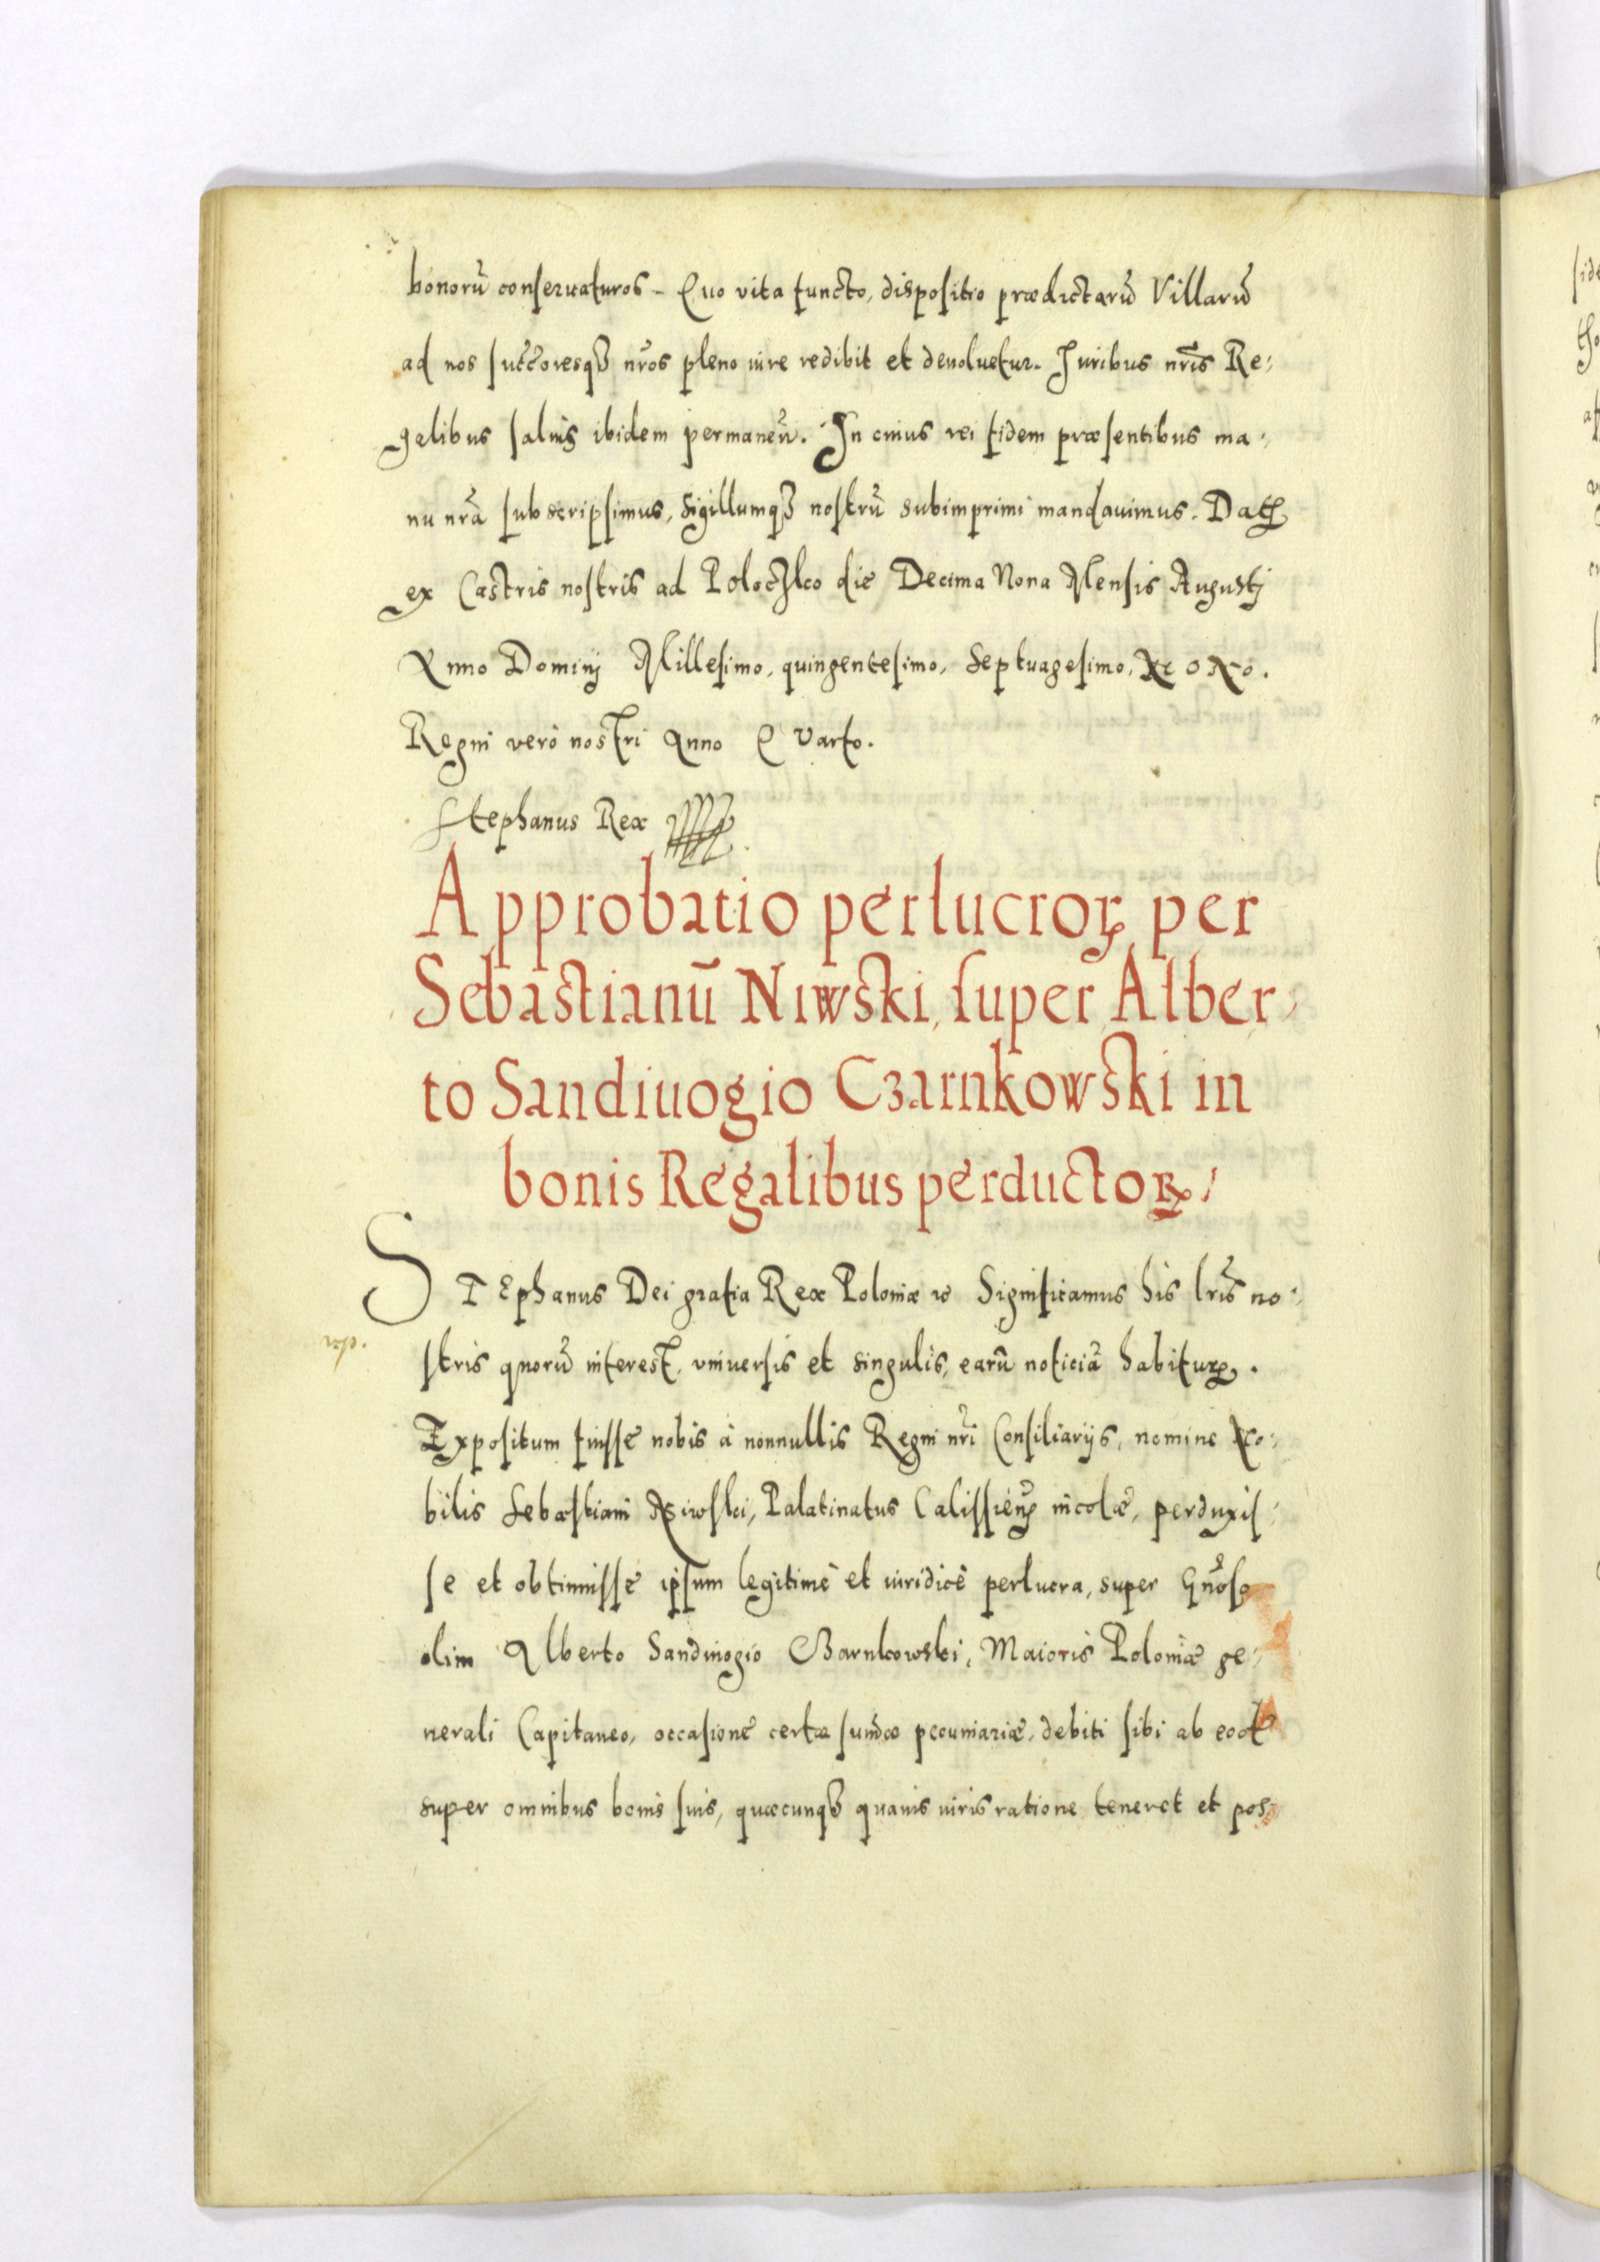 bonorũ conseruaturos – Quo vita functo, dispositio prædictarũ Villarũ
ad nos succoresq₃ nr̃os pleno iure redibit et deuoluetur. Iuribus nr̃is Re-
galibus saluis ibidem permaneñ. In cuius rei fidem præsentibus ma-
nu nr̃a subscripsimus, Sigillumq₃ nostrũ subimprimi mandauimus. Dat
ex Castris nostris ad Poloczko die Decima Nona Mensis Augusti
Anno Dominj Millesimo, quingentesimo, Septuagesimo, Nono.
Regni vero nostri Anno Quarto.
Stephanus Rex
Approbatio perlucroꝝ per
Sebastianũ Niwski, super Alber-
to Sandiuogio Czarnkowski in
bonis Regalibus perductoꝝ
STEphanus Dei gratia Rex Poloniæ ꝛc Significamus his lr̃is no-
stris quorũ interest, vniuersis et singulis, earũ noticiã habituꝝ.
Expositum fuisse nobis à nonnullis Regni nr̃i Consiliarijs, nomine No-
bilis Sebastiani Niwski, Palatinatus Calissieñ incolæ, perduxis-
se et obtinuisse ipsum legitimè et iuridicè perlucra, super Gñoso
olim Alberto Sandiuogio Czarnkowski, Maioris Poloniæ ge-
nerali Capitaneo, occasione certæ sum̃æ pecuniariæ, debiti sibi ab eod
super omnibus bonis suis, quæcunq₃ quauis iuris ratione teneret et pos-